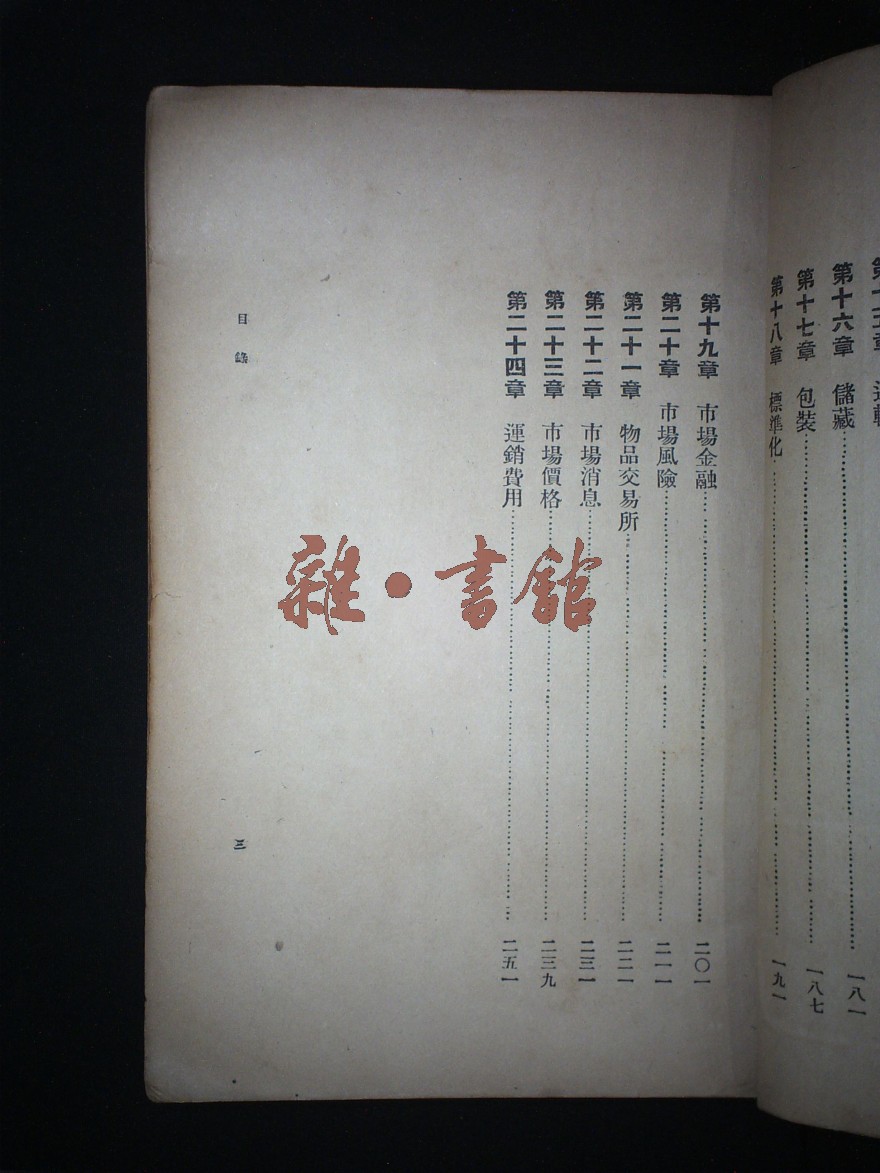 第十五章
第十六章 儲藏 一八一
第十七章 包裝 一八七
第十八章 標準化 一九一
第十九章 市場金融 二〇一
第二十章 市場風險 二一一
第二十一章 物品交易所 二二一
第二十二章 市場消息 二三一
第二十三章 市場價格 二三九
第二十四章 運銷費用 二五一
目錄
三
雜·書館